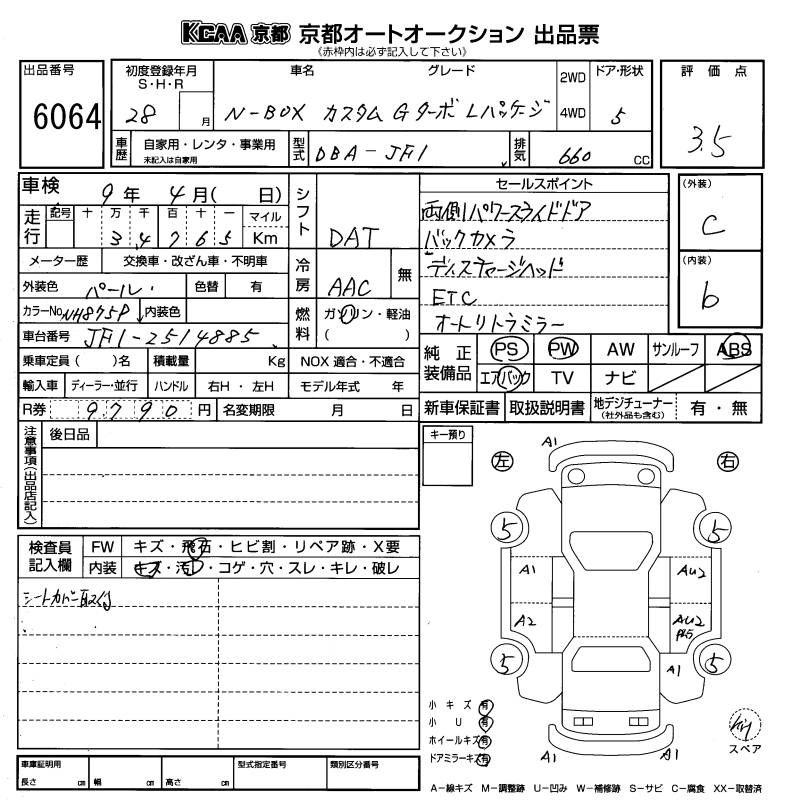 KCAA 京都 京都オートオークション 出品票
(赤枠内は必ず記入して下さい)
出品番号
6064
初度登録年月
S・H・R
28 月
車名 グレード
N-BOX カスタム G ターボ Lパッケージ
2WD
4WD
ドア・形状
5
評価点
3.5
車歴
自家用・レンタ・事業用
未記入は自家用
型式
DBA-JF1
排気
660 CC
車検 9年 4月( 日)
走行 記号 十 万 千 百 十 一 マイル
3 4 7 6 5 Km
シフト
DAT
メーター歴 交換車・改ざん車・不明車
外装色 パール 色替 有
冷房
AAC 無
カラーNo NH875P 内装色
燃料
ガソリン・軽油
( )
車台番号 JF1-2514885
乗車定員( )名 積載量 Kg NOX 適合・不適合
輸入車 ディーラー・並行 ハンドル 右H・左H モデル年式 年
R券 9790 円 名変期限 月 日
セールスポイント
両側パワースライドドア
バックカメラ
ディスチャージヘッド
ETC
オートリトラミラー
(外装)
C
(内装)
b
純正装備品
PS PW AW サンルーフ ABS
エアバック TV ナビ
新車保証書 取扱説明書 地デジチューナー
(社外品も含む)
有・無
注意事項(出品店記入)
後日品
キー預り
検査員記入欄
FW キズ・飛石・ヒビ割・リペア跡・X要
内装 キズ・汚・コゲ・穴・スレ・キレ・破レ
シートカバー取付
左 右
A1
5 5
A1 AU2
A2 AU2
5 5
A1
A1 A1
小キズ 有
小U 有
ホイールキズ 有
ドアミラーキズ 有
スペア
車庫証明用
長さ cm 幅 cm 高さ cm
型式指定番号
類別区分番号
A-線キズ M-調整跡 U-凹み W-補修跡 S-サビ C-腐食 XX-取替済